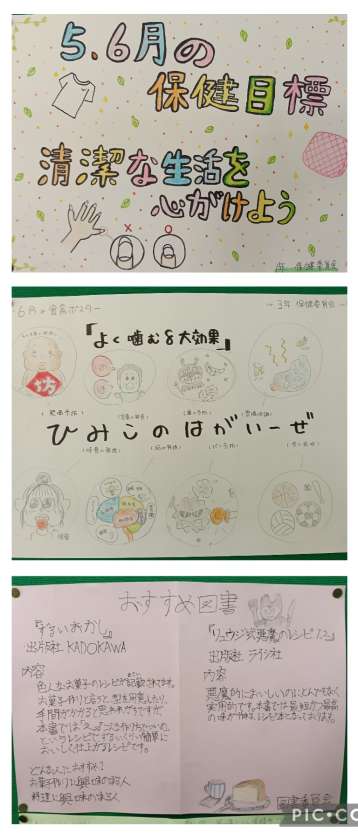 5.6月の
保健目標
清潔な生活を
心がけよう
保健委員会
6月の食育ポスター
3年 保健委員会
「よく噛む8大効果」
ひみこのはがいーぜ
おすすめ図書
『ずるいおかし』
出版社 KADOKAWA
内容
色んなお菓子のレシピが記載されてます。
お菓子作りと言うと、型を用意したり、
手間がかかると思われがちですが
本書では
というレシピでずるいくらい簡単に
おいしく仕上がるレシピです。
どんな人におすすめ?
お菓子作りに興味のある人
料理に興味のある人
『リュウジ式悪魔のレシピ
出版社 ライツ社
内容
悪魔的においしいのにとんでもなく
実用的です。本書では最短かつ最高
の味が作れるレシピ本となっております。
図書委員会
PIC-CO